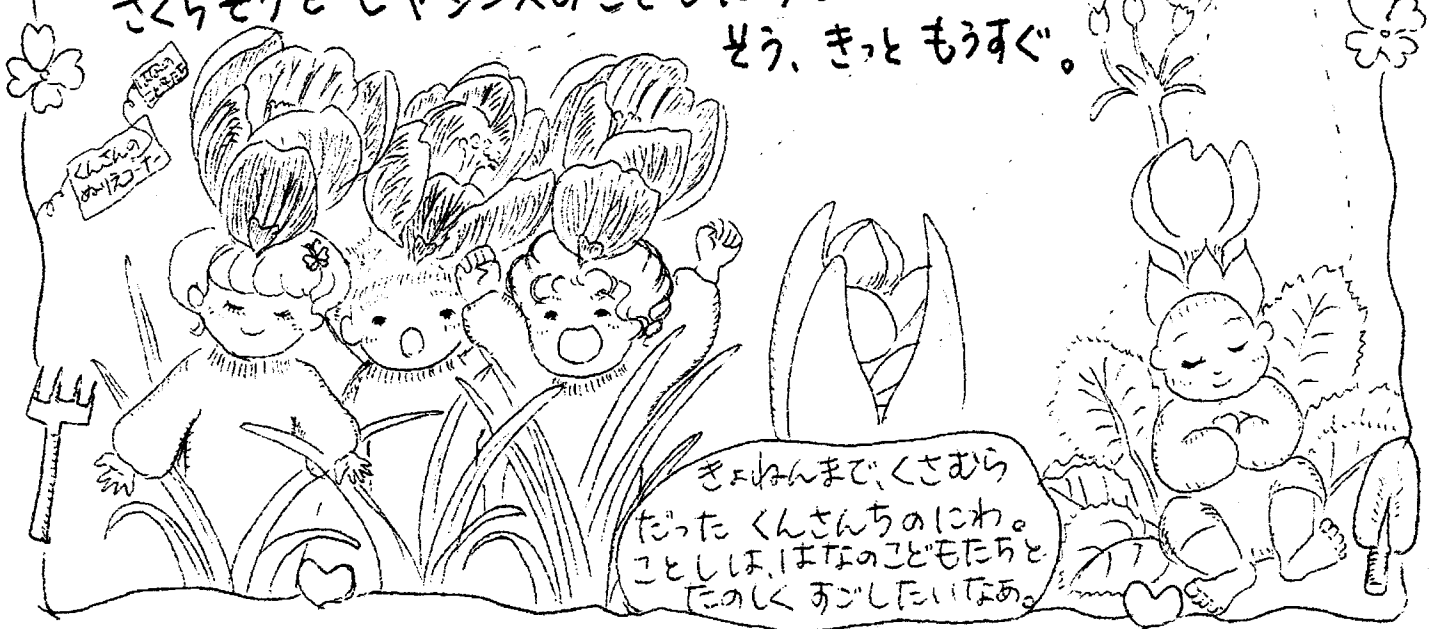 さくらそうと ヒヤシンスのこどもたち。
そう、きっと もうすぐ。
くんさんの
ぬりえコーナー
きょねんまで、くさむら
だった くんさんちのにわ。
ことしは、はなのこどもたちと
たのしく すごしたいなあ。